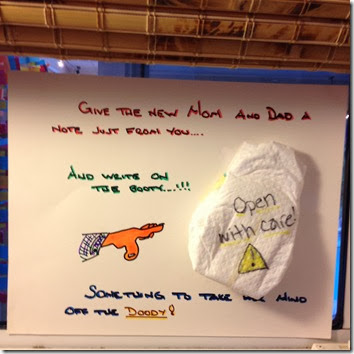 Give the new Mom and Dad a
note just from you....
And write on
the booty...!!!
Open
with care!
!
Something to take the mind
off the Doody!